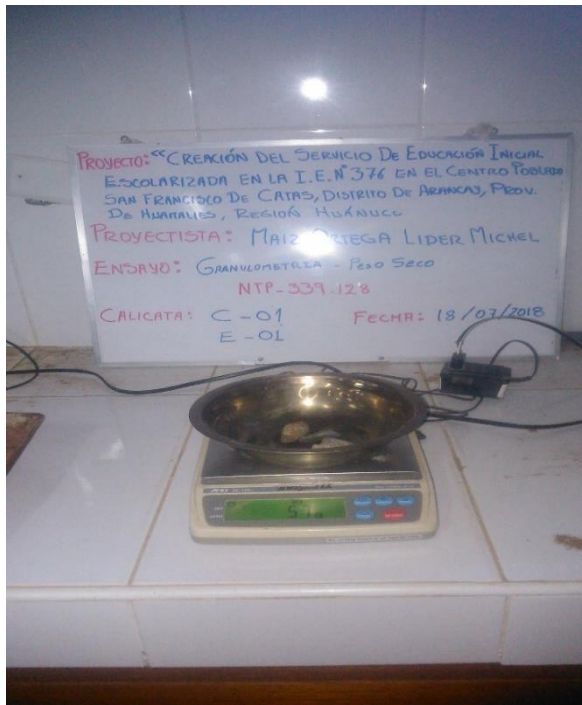 PROYECTO: "CREACIÓN DEL SERVICIO DE EDUCACIÓN INICIAL
ESCOLARIZADA EN LA I.E.N°376 EN EL CENTRO POBLADO
SAN FRANCISCO DE CATAS, DISTRITO DE ARANCAY, PROV.
DE HUAMALIES, REGIÓN HUÁNUCO
PROYECTISTA: MAIZ ORTEGA LIDER MICHEL
ENSAYO: GRANULOMETRIA - PESO SECO
NTP-339.128
CALICATA: C-01 FECHA: 18/07/2018
E-01